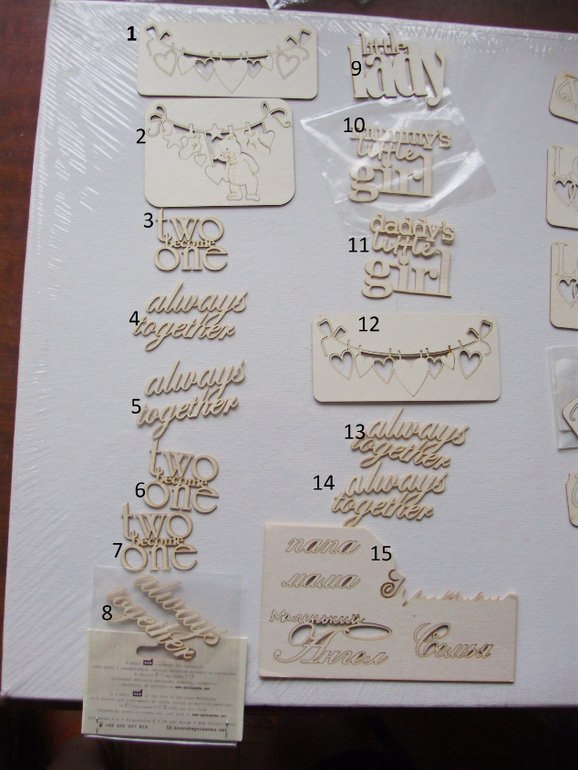 1
2
3
two
become
one
4
always
together
5
always
together
6
two
become
one
7
two
become
one
8
always
together
9
little
lady
10
mummy's
little
girl
11
daddy's
little
girl
12
13
always
together
14
always
together
15
папа
мама
Маленький
Ангел
Семья